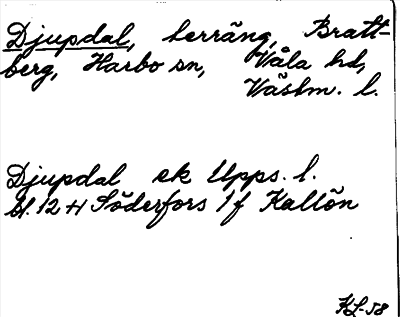 Djupdal, herräng, Bratt-
berg, Harbo sn, Våla hd,
Västm. l.
Djupdal ek Upps. l.
bl. 12 H Söderfors 1f Kallön
KL-58